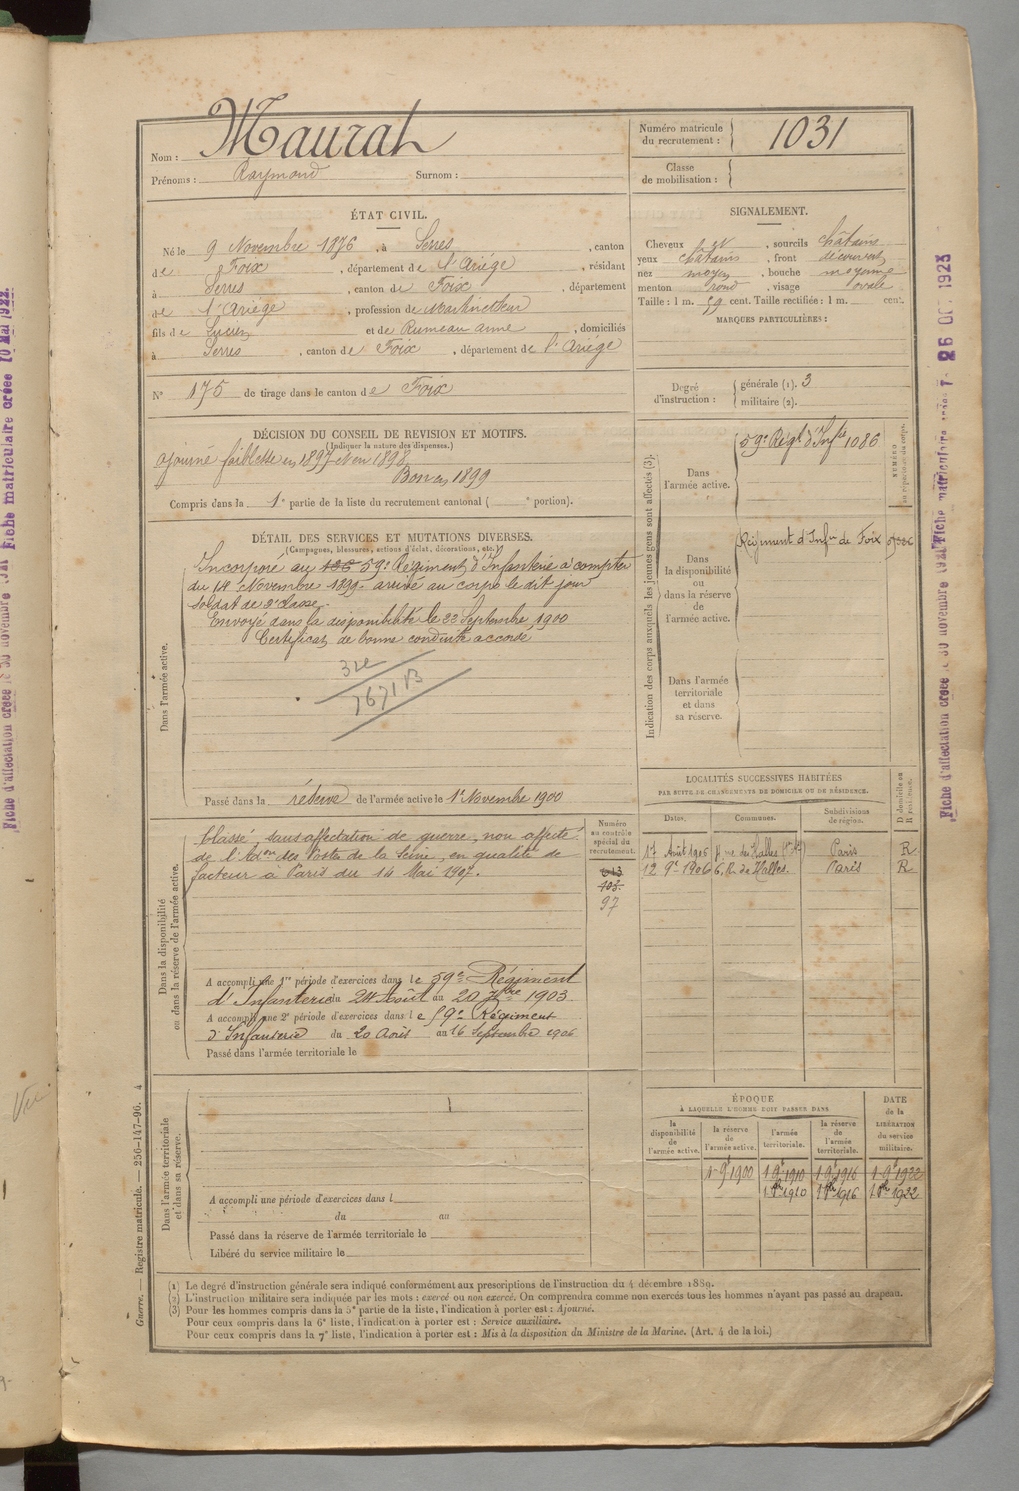 Nom : Maurat
Prénoms : Raymond Surnom :
Numéro matricule du recrutement : 1031
Classe de mobilisation :
ÉTAT CIVIL.
Né le 9 Novembre 1876, à Serres, canton
de Foix, département de l'Ariége, résidant
à Serres, canton de Foix, département
de l'Ariège, profession de Martineteur
fils de Lucien et de Rumeau Anne, domiciliés
à Serres, canton de Foix, département de l'Ariége
N° 175 de tirage dans le canton de Foix
SIGNALEMENT.
Cheveux et, sourcils châtains
yeux châtains, front découvert
nez moyen, bouche moyenne
menton rond, visage ovale
Taille : 1 m. 59 cent. Taille rectifiée : 1 m. cent.
MARQUES PARTICULIÈRES :
Degré d'instruction : générale (1). 3
militaire (2).
DÉCISION DU CONSEIL DE REVISION ET MOTIFS.
(Indiquer la nature des dispenses.)
ajourné faiblesse en 1897 et en 1898
Bon en 1899
Compris dans la 1e partie de la liste du recrutement cantonal ( e portion).
DÉTAIL DES SERVICES ET MUTATIONS DIVERSES.
(Campagnes, blessures, actions d'éclat, décorations, etc.)
Dans l'armée active.
Incorporé au 59e Régiment d'Infanterie à compter
du 14 Novembre 1899 arrivé au corps le dit jour
soldat de 2e classe.
Envoyé dans la disponibilité le 22 Septembre 1900
Certificat de bonne conduite accordé
Passé dans la réserve de l'armée active le 1r Novembre 1900
Indication des corps auxquels les jeunes gens sont affectés (3).
NUMÉRO au répertoire du corps.
Dans l'armée active.
59e Régt d'Infie 1086
Dans la disponibilité ou dans la réserve de l'armée active.
Régiment d'Infie de Foix
Dans l'armée territoriale et dans sa réserve.
LOCALITÉS SUCCESSIVES HABITÉES
PAR SUITE DE CHANGEMENTS DE DOMICILE OU DE RÉSIDENCE.
Dates. Communes. Subdivisions de région. D domicile ou R résidence.
17 Août 1905 rue des Halles Paris R
12 9e 1906 6, R. des Halles. Paris R
Dans la disponibilité ou dans la réserve de l'armée active.
Numéro au contrôle spécial du recrutement.
613
403
97
Classé dans affectation de guerre, non affecté
de l'Adon des Postes de la Seine, en qualité de
facteur à Paris du 14 Mai 1907.
A accompli une 1re période d'exercices dans le 59e Régiment
d'Infanterie du 24 Août au 20 7bre 1903
A accompli une 2e période d'exercices dans le 59e Régiment
d'Infanterie du 20 Août au 16 Septembre 1906
Passé dans l'armée territoriale le
Dans l'armée territoriale et dans sa réserve.
A accompli une période d'exercices dans l
du au
Passé dans la réserve de l'armée territoriale le
Libéré du service militaire le
ÉPOQUE
À LAQUELLE L'HOMME DOIT PASSER DANS
la disponibilité de l'armée active. la réserve de l'armée active. l'armée territoriale. la réserve de l'armée territoriale. DATE de la LIBÉRATION du service militaire.
1 9e 1900 1 9e 1910 1 9e 1916 1 9e 1922
1 8e 1910 1 8e 1916 1 8e 1922
(1) Le degré d'instruction générale sera indiqué conformément aux prescriptions de l'instruction du 4 décembre 1889.
(2) L'instruction militaire sera indiquée par les mots : exercé ou non exercé. On comprendra comme non exercés tous les hommes n'ayant pas passé au drapeau.
(3) Pour les hommes compris dans la 5e partie de la liste, l'indication à porter est : Ajourné.
Pour ceux compris dans la 6e liste, l'indication à porter est : Service auxiliaire.
Pour ceux compris dans la 7e liste, l'indication à porter est : Mis à la disposition du Ministre de la Marine. (Art. 4 de la loi.)
Guerre. — Registre matricule. — 256-147-96. 4